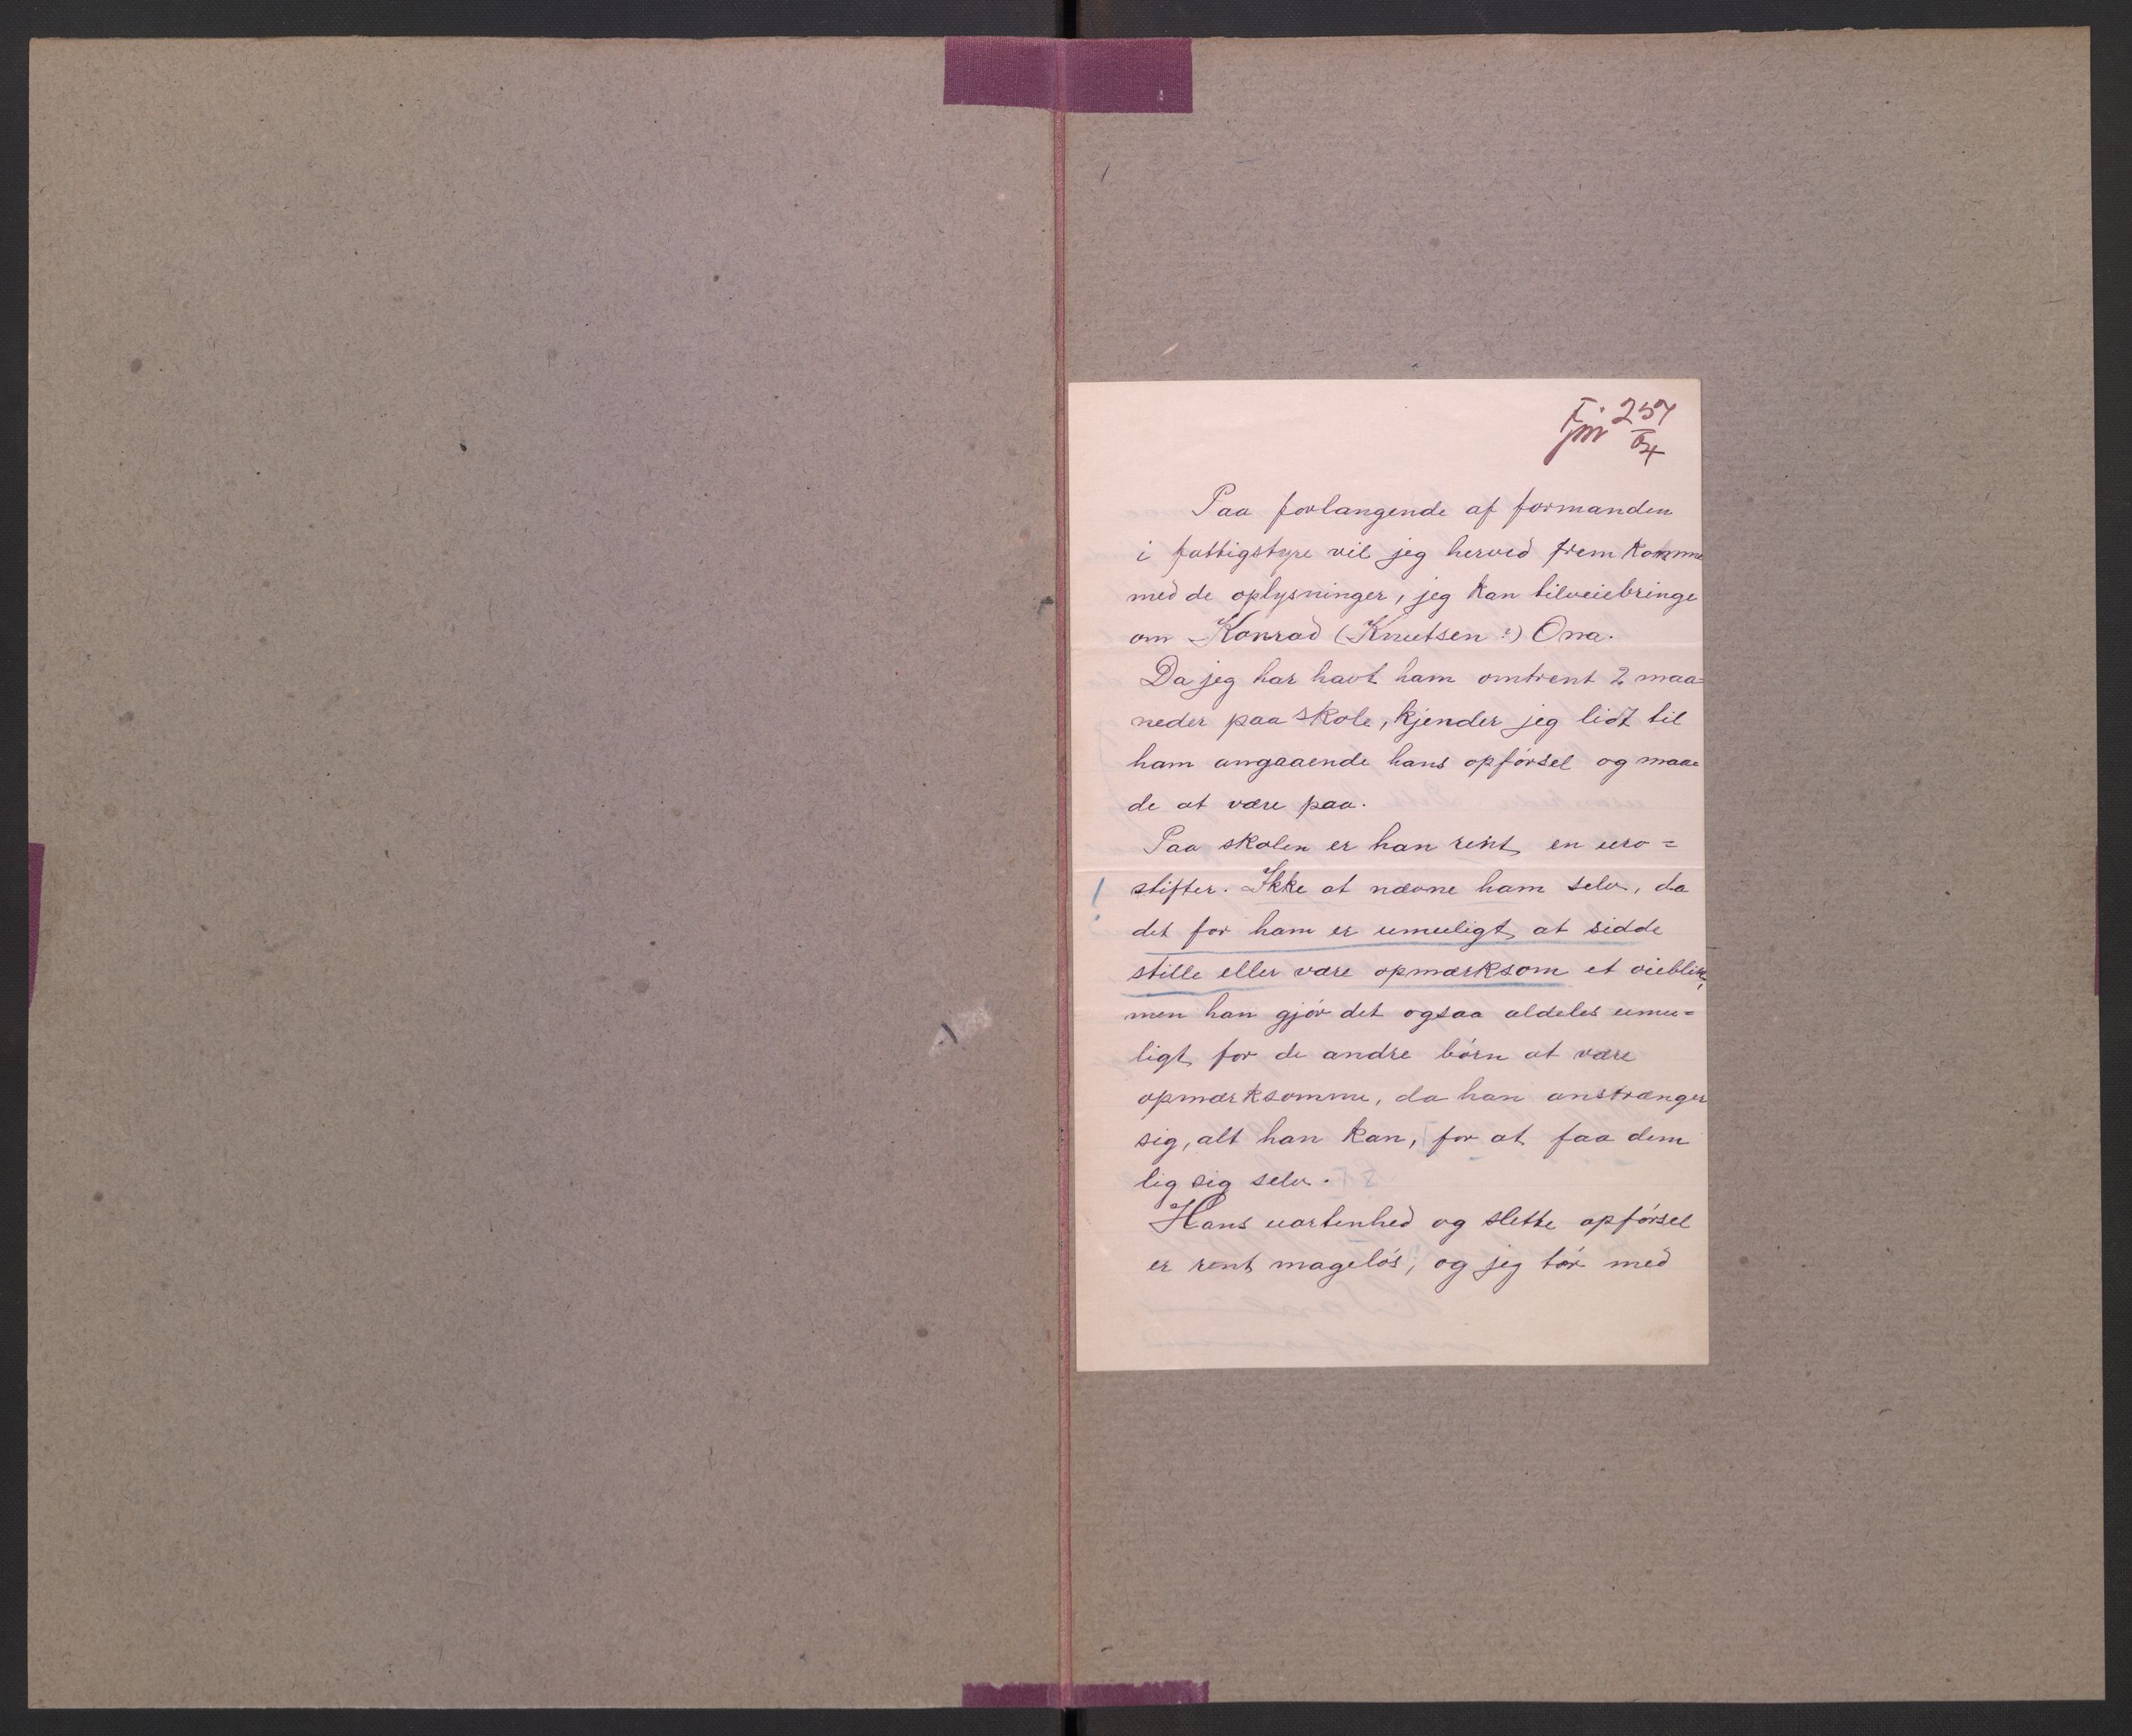 257
Paa forlangende af formanden
i fattigstyre vil jeg herved fremkomme
med de oplysninger, jeg kan tilveiebringe
om Konrad (Knutsen ?) Ona.
Da jeg har havt ham omtrent 2 maa=
neder paa skole, kjender jeg lidt til
ham angaaende hans opførsel og maa=
de at være paa.
Paa skolen er han rent en uro=
stifter. Ikke at nævne ham selv, da
!
det for ham er umuligt at sidde
stille eller være opmærksom et øieblik,
men han gjør det ogsaa aldeles umu=
ligt for de andre børn at være
opmærksomme, da han anstrænger
sig, alt han kan, for at faa dem
lig sig selv.
Hans uartenhed og slette opførsel
er rent mageløs; og jeg tør med